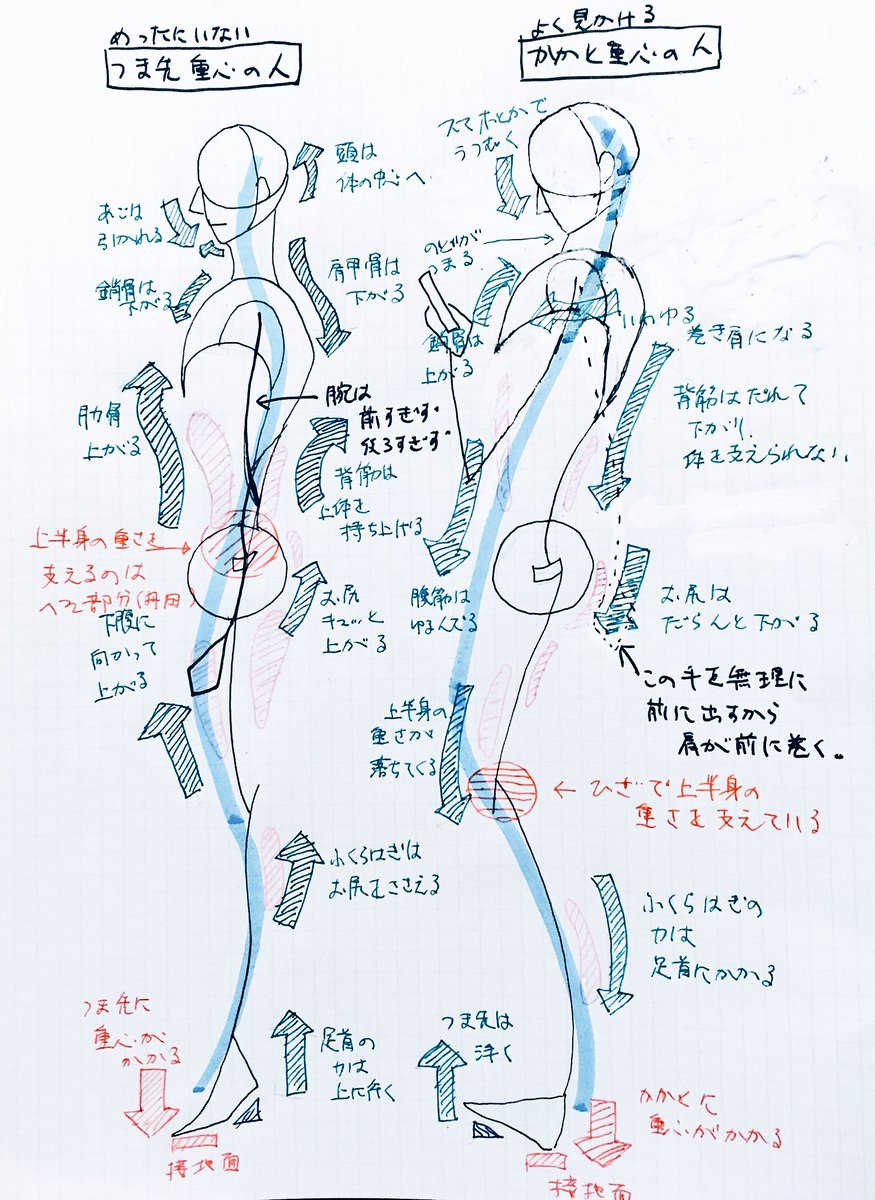 めったにいない
つま先重心の人
頭は
体の中心へ
あごは
引かれる
鎖骨は
下がる
肩甲骨は
下がる
肋骨
上がる
腕は
前すぎず
後ろすぎず
背筋は
上体を
持ち上げる
上半身の重さを
支えるのは
へそ部分(丹田)
下腹に
向かって
上がる
お尻
キュッと
上がる
ふくらはぎは
お尻をささえる
つま先に
重心が
かかる
足首の
力は
上に行く
接地面
よく見かける
かかと重心の人
スマホとかで
うつむく
のどが
つまる
鎖骨は
上がる
いわゆる
巻き肩になる
背筋はだれて
下がり、
体を支えられない。
腹筋は
ゆるんでる
お尻は
だらんと下がる
この手を無理に
前に出すから
肩が前に巻く。
上半身の
重さが
落ちてくる
ひざで上半身の
重さを支えている
ふくらはぎの
力は
足首にかかる
つま先は
浮く
かかとに
重心がかかる
接地面